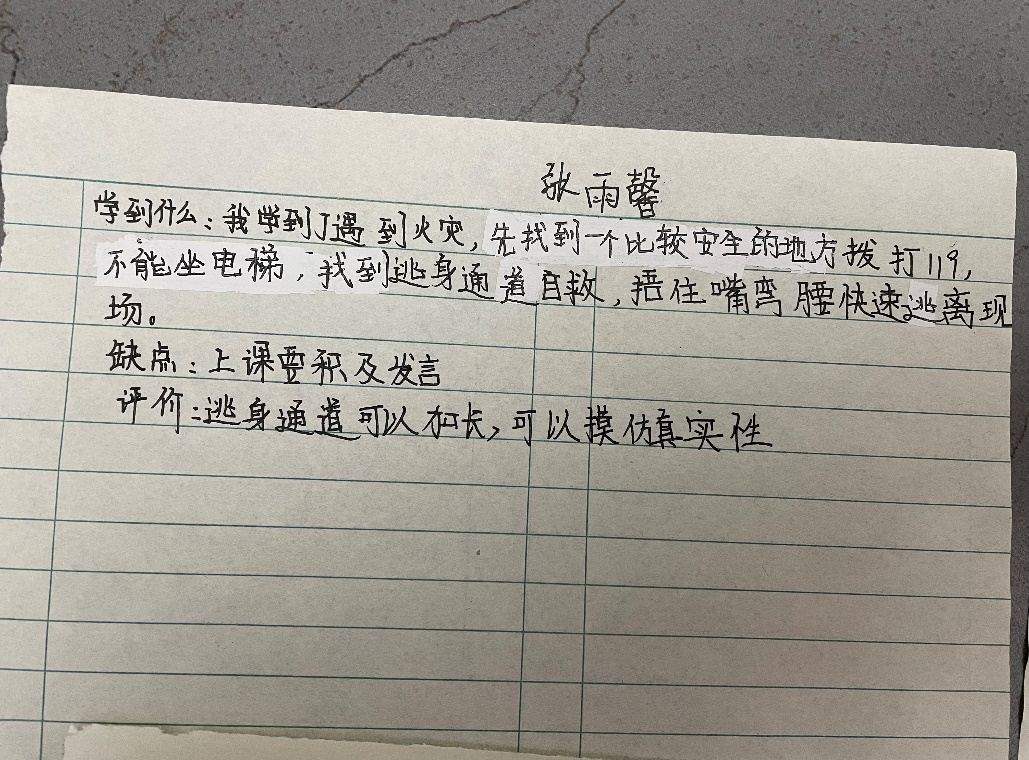 张雨馨
学到什么：我学到了遇到火灾，先找到一个比较安全的地方拨打119，
不能坐电梯，找到逃身通道自救，捂住嘴弯腰快速逃离现
场。
缺点：上课要积及发言
评价：逃身通道可以加长，可以摸仿真实性